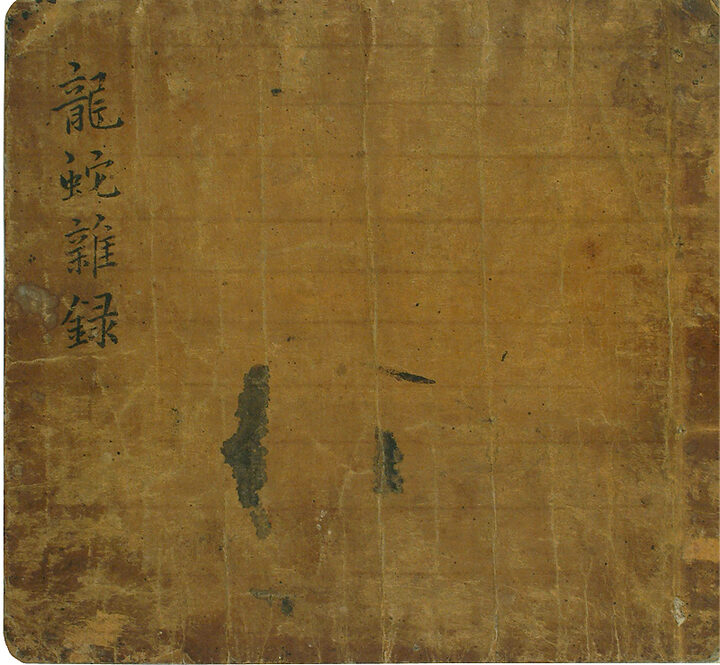 龍蛇雜録